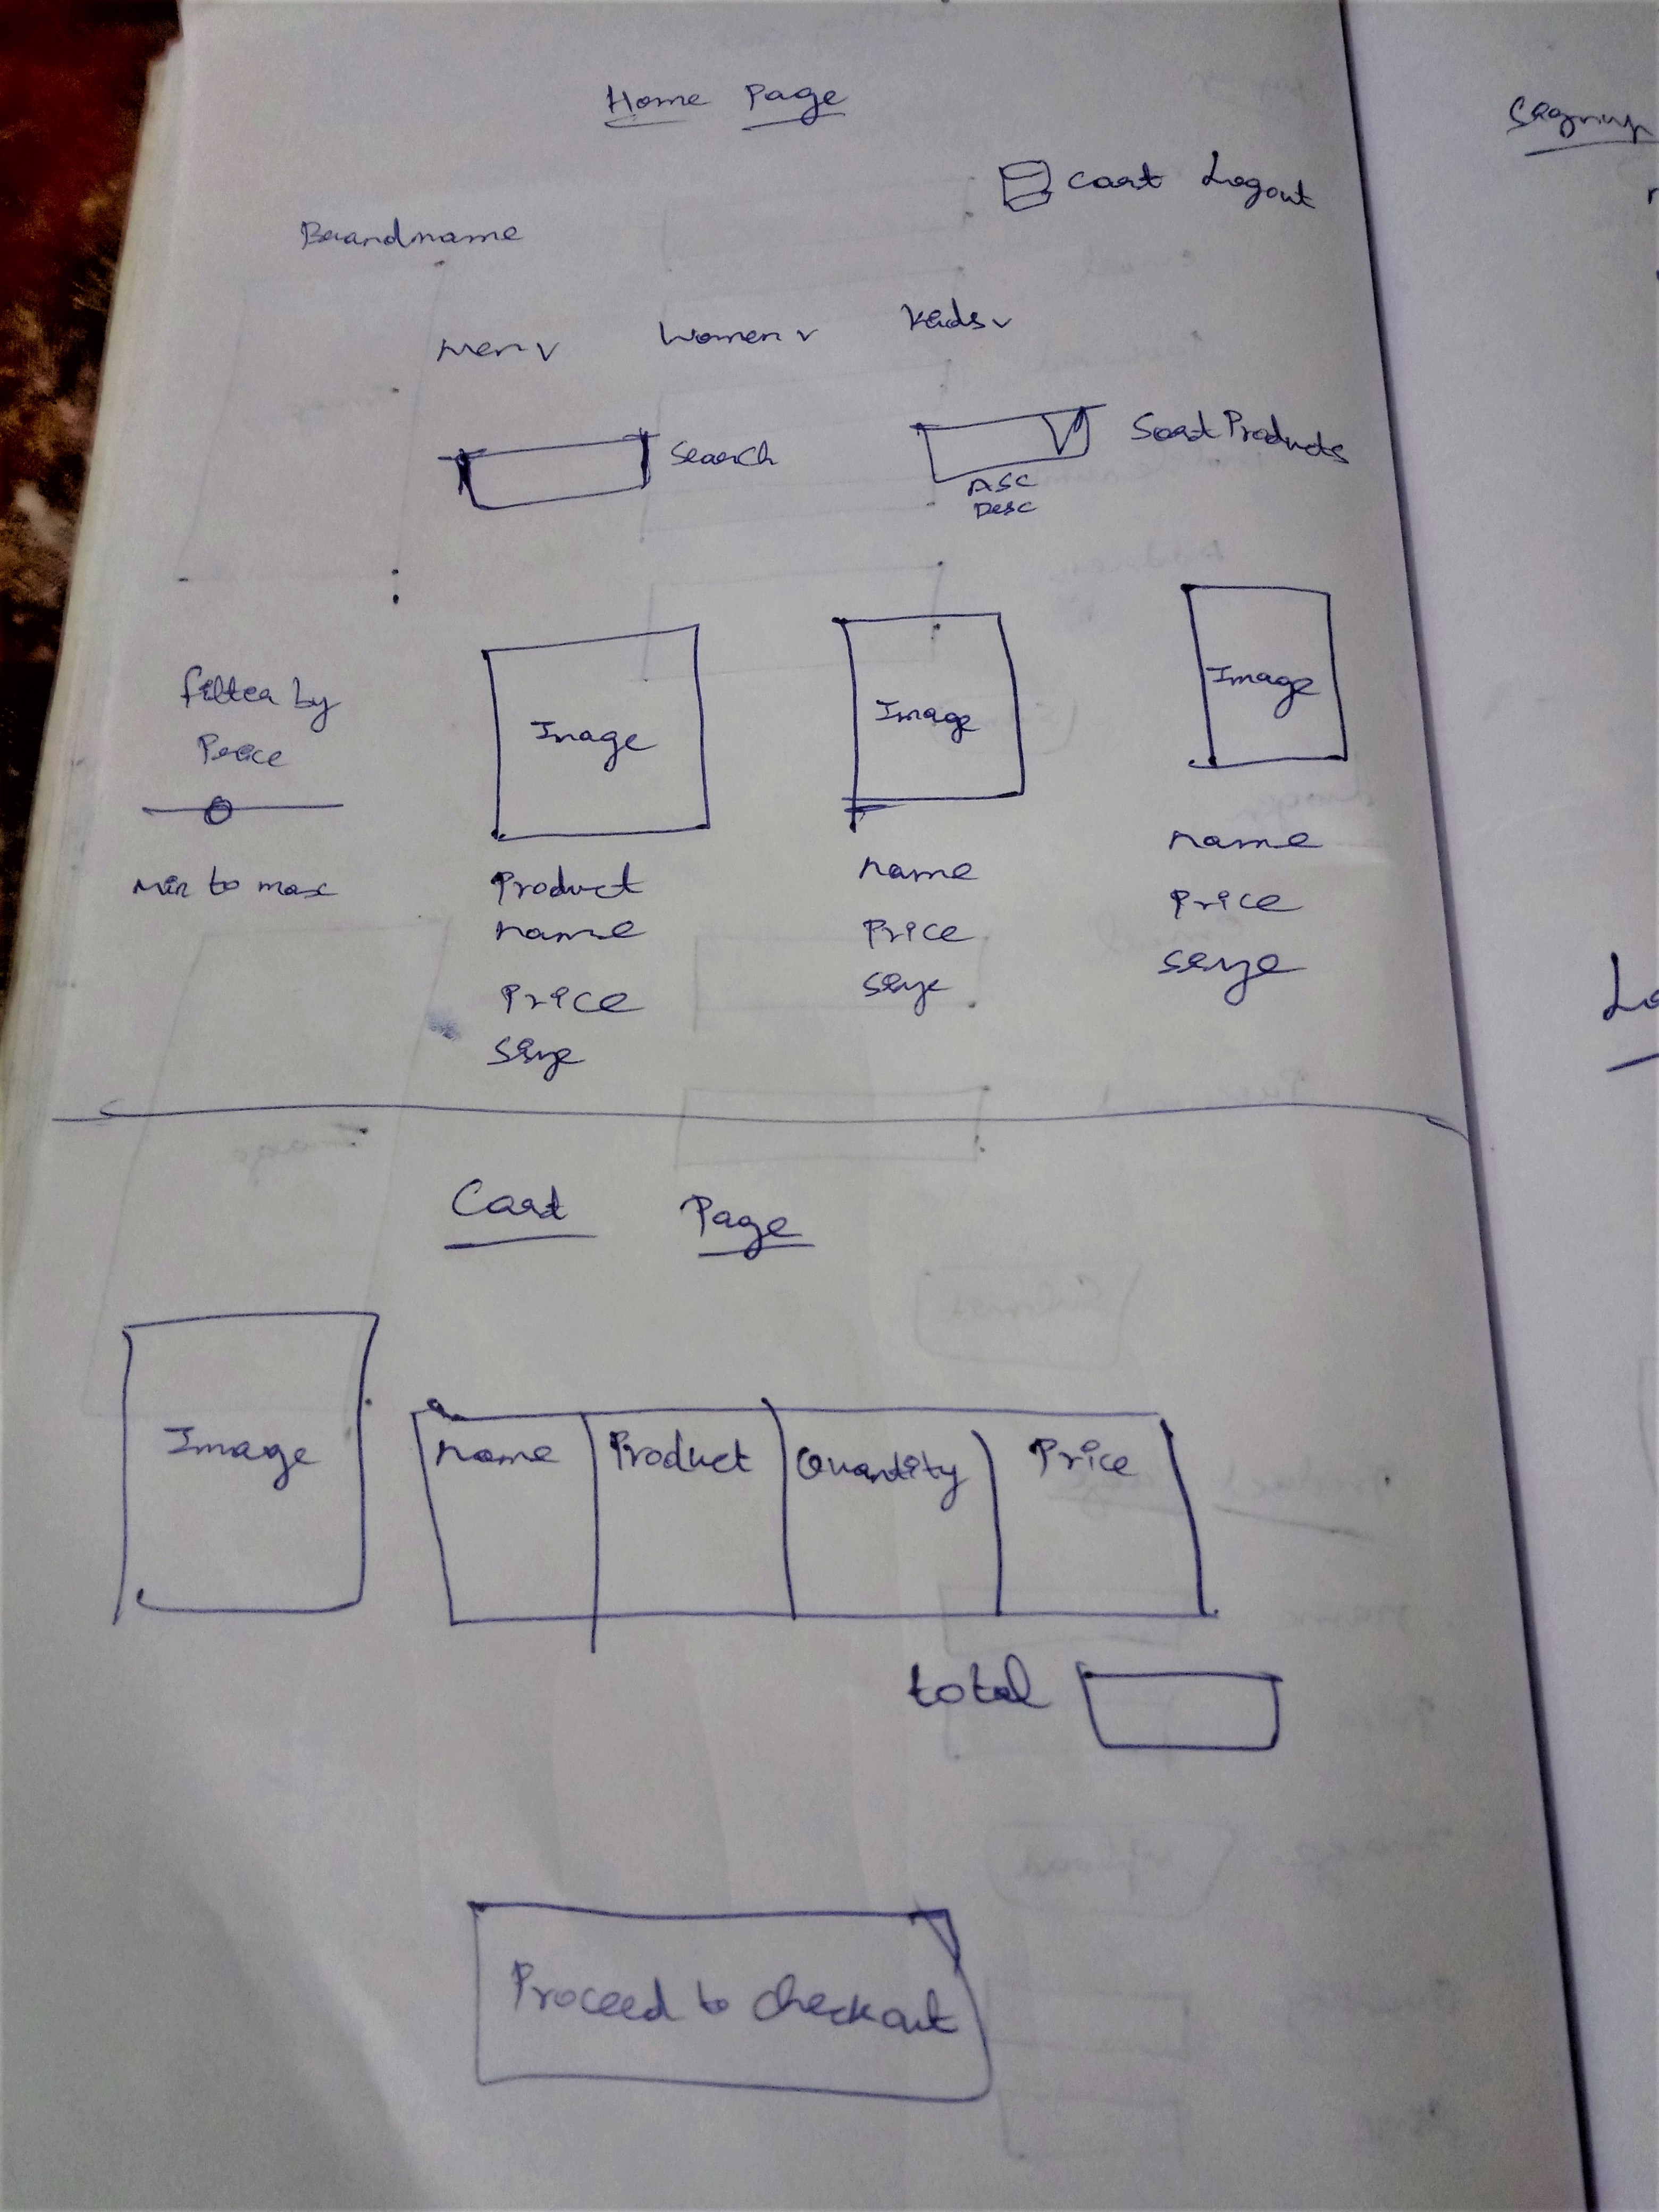 Home Page
Cart Logout
Brandname
Men v Women v Kids v
Search
Sort Products
ASC
Desc
filter by
Price
Min to max
Image
Product
name
Price
Size
Image
name
Price
Size
Image
name
Price
Size
Cart Page
Image
name Product Quantity Price
total
Proceed to checkout